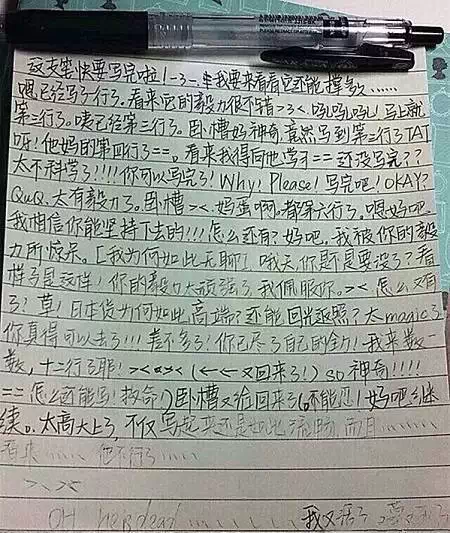 这支笔快要写完啦!-3-来我要来看看它还能撑多……
嗯,已经写了一行了。看来它的毅力很不错><,吼吼吼!马上就
第二行了。咦已经第二行了。卧槽好神奇,竟然写到第三行了TAT
呀!他妈的第四行了==。看来我得向他学习==还没写完??
太不科学了!!!!你可以写完了!Why!Please!写完吧!OKAY?
QuQ.太有毅力了。卧槽><.妈蛋啊。都第六行了。嗯,好吧
我相信你能坚持下去的!!!怎么还有?好吧,我被你的毅
力所惊呆。[我为何如此无聊],哦天,你是不是要没了?看
样子是这样!你的毅力太顽强了,我佩服你。><怎么又有
了?草!日本货为何如此高端?还能回光返照?太magic了
你真得可以去了!!!差不多了!你已尽了自己的全力!我来数
数,十二行了耶!><«><(←←又回来了!)so神奇!!!!
==怎么还能写!救命!)卧槽又给回来了(不能忍!好吧,继
续。太高大上了,不仅写起来还是如此流畅,而且……
看来…… 他不行了……
>、><
OH he is dead…… 我又活了